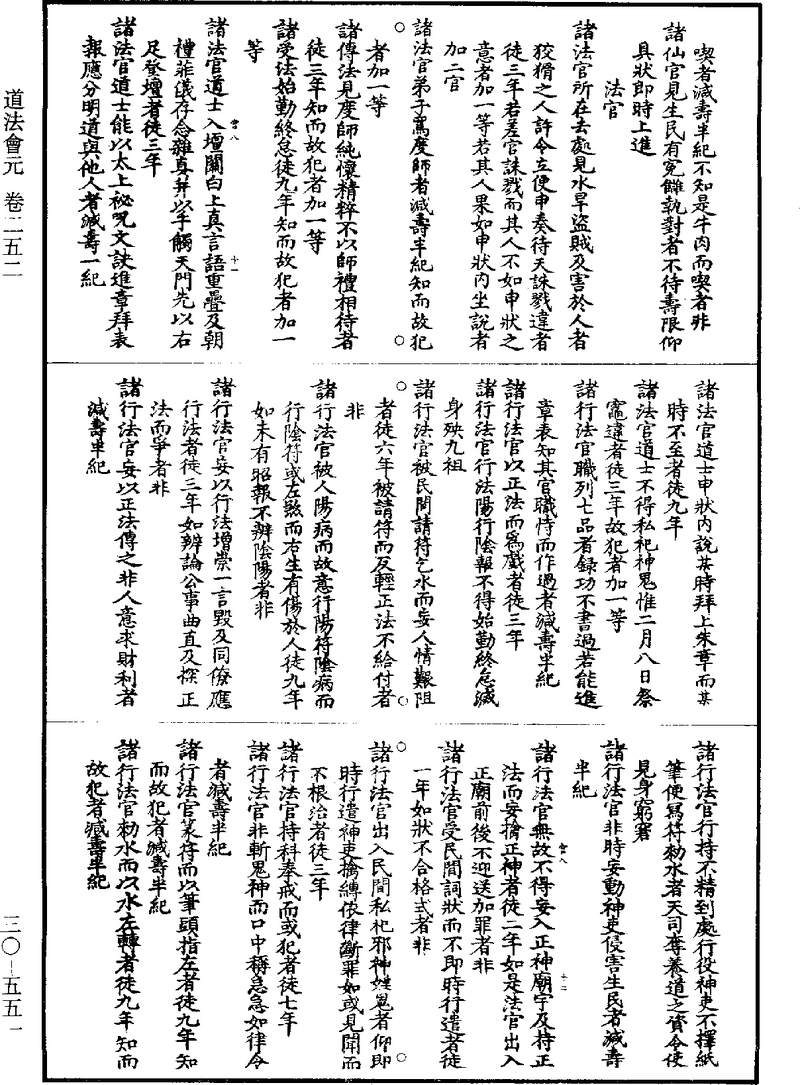 道法會元 卷二五二
喫者減壽半紀不知是牛肉而喫者非
諸仙官見生民有冤讎執對者不待壽限仰
具狀即時上進
法官
諸法官所在去處見水旱盜賊及害於人者
狡猾之人許令立便申奏待天誅戮違者
徒三年若差官誅戮而其人不如申狀之
意者加一等若其人果如申狀內坐說者
加二官
諸法官弟子罵度師者減壽半紀知而故犯
者加一等
諸傳法見度師純懷精粹不以師禮相待者
徒三年知而故犯者加一等
諸受法始勤終怠徒九年知而故犯者加一
等
諸法官道士入壇關白上真言語重疊及朝
禮菲儀存念雜真并以手觸天門先以右
足登壇者徒三年
諸法官道士能以太上祕呪文訣進章拜表
報應分明道與他人者減壽一紀
諸法官道士申狀內說某時拜上朱章而其
時不至者徒九年
諸法官道士不得私祀神鬼惟二月八日祭
竈違者徒三年故犯者加一等
諸行法官職列七品者錄功不書過若能進
章表知其官職恃而作過者減壽半紀
諸行法官以正法而為戲者徒三年
諸行法官行法陽行陰報不得始勤終怠滅
身殃九祖
諸行法官被民間請符乞水而妄人情艱阻
者徒六年被請符而反輕正法不給付者
非
諸行法官被人陽病而故意行陽符陰病而
行陰符或左煞而右生有傷於人徒九年
如未有昭報不辨陰陽者非
諸行法官妄以行法增崇一言毀及同僚應
行法者徒三年如辨論公事曲直及探正
法而爭者非
諸行法官妄以正法傳之非人意求財利者
減壽半紀
諸行法官行持不精到處行役神吏不擇紙
筆便寫符勑水者天司奪養道之資令使
見身窮窘
諸行法官非時妄動神吏侵害生民者減壽
半紀
諸行法官無故不得妄入正神廟宇及持正
法而妄擒正神者徒二年如是法官出入
正廟前後不迎送加罪者非
諸行法官受民間詞狀而不即時行遣者徒
一年如狀不合格式者非
諸行法官出入民間私祀邪神姓鬼者仰即
時行遣神吏擒縛依律斷罪如或見聞而
不根治者徒三年
諸行法官持科奉戒而或犯者徒七年
諸行法官非斬鬼神而口中稱急急如律令
者減壽半紀
諸行法官篆符而以筆頭指左者徒九年知
而故犯者減壽半紀
諸行法官勑水而以水左轉者徒九年知而
故犯者減壽半紀
三〇—五五一